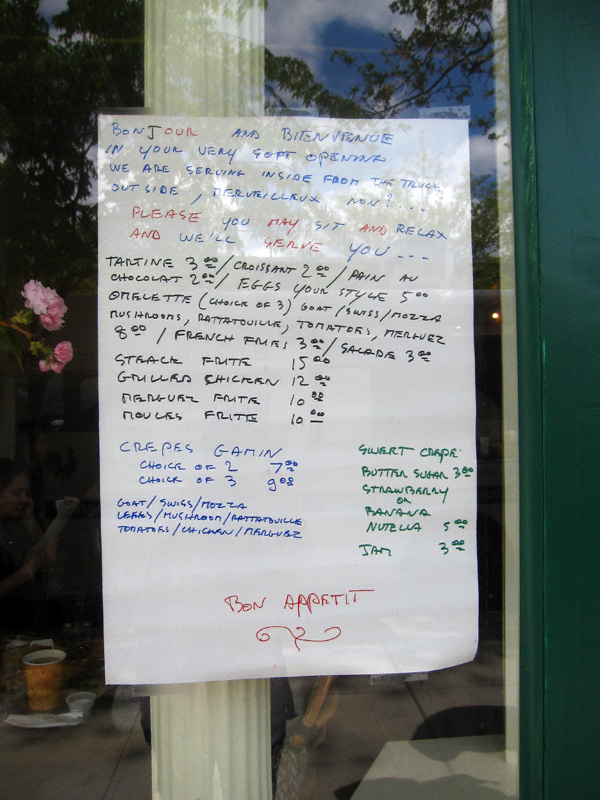 BONJOUR AND BIENVENUE
IN YOUR VERY SOFT OPENING
WE ARE SERVING INSIDE FROM THE TRUCK
OUTSIDE, MERVEILLEUX NON?...
PLEASE YOU MAY SIT AND RELAX
AND WE'LL SERVE YOU...
TARTINE 3.00 / CROISSANT 2.00 / PAIN AU
CHOCOLAT 2.00 / EGGS YOUR STYLE 5.00
OMELETTE (CHOICE OF 3) GOAT/SWISS/MOZZA
MUSHROOMS, RATTATOUILLE, TOMATOES, MERGUEZ
8.00 / FRENCH FRIES 3.00 / SALADE 3.00
STEACK FRITE 15.00
GRILLED CHICKEN 12.00
MERGUEZ FRITE 10.00
MOULES FRITE 10.00
CREPES GAMIN
CHOICE OF 2 7.00
CHOICE OF 3 9.00
GOAT/SWISS/MOZZA
LEEKS/MUSHROOM/RATTATOUILLE
TOMATOES/CHICKEN/MERGUEZ
SWEET CREPE:
BUTTER SUGAR 3.00
STRAWBERRY
OR
BANANA
NUTELLA 5.00
JAM 3.00
BON APPETIT